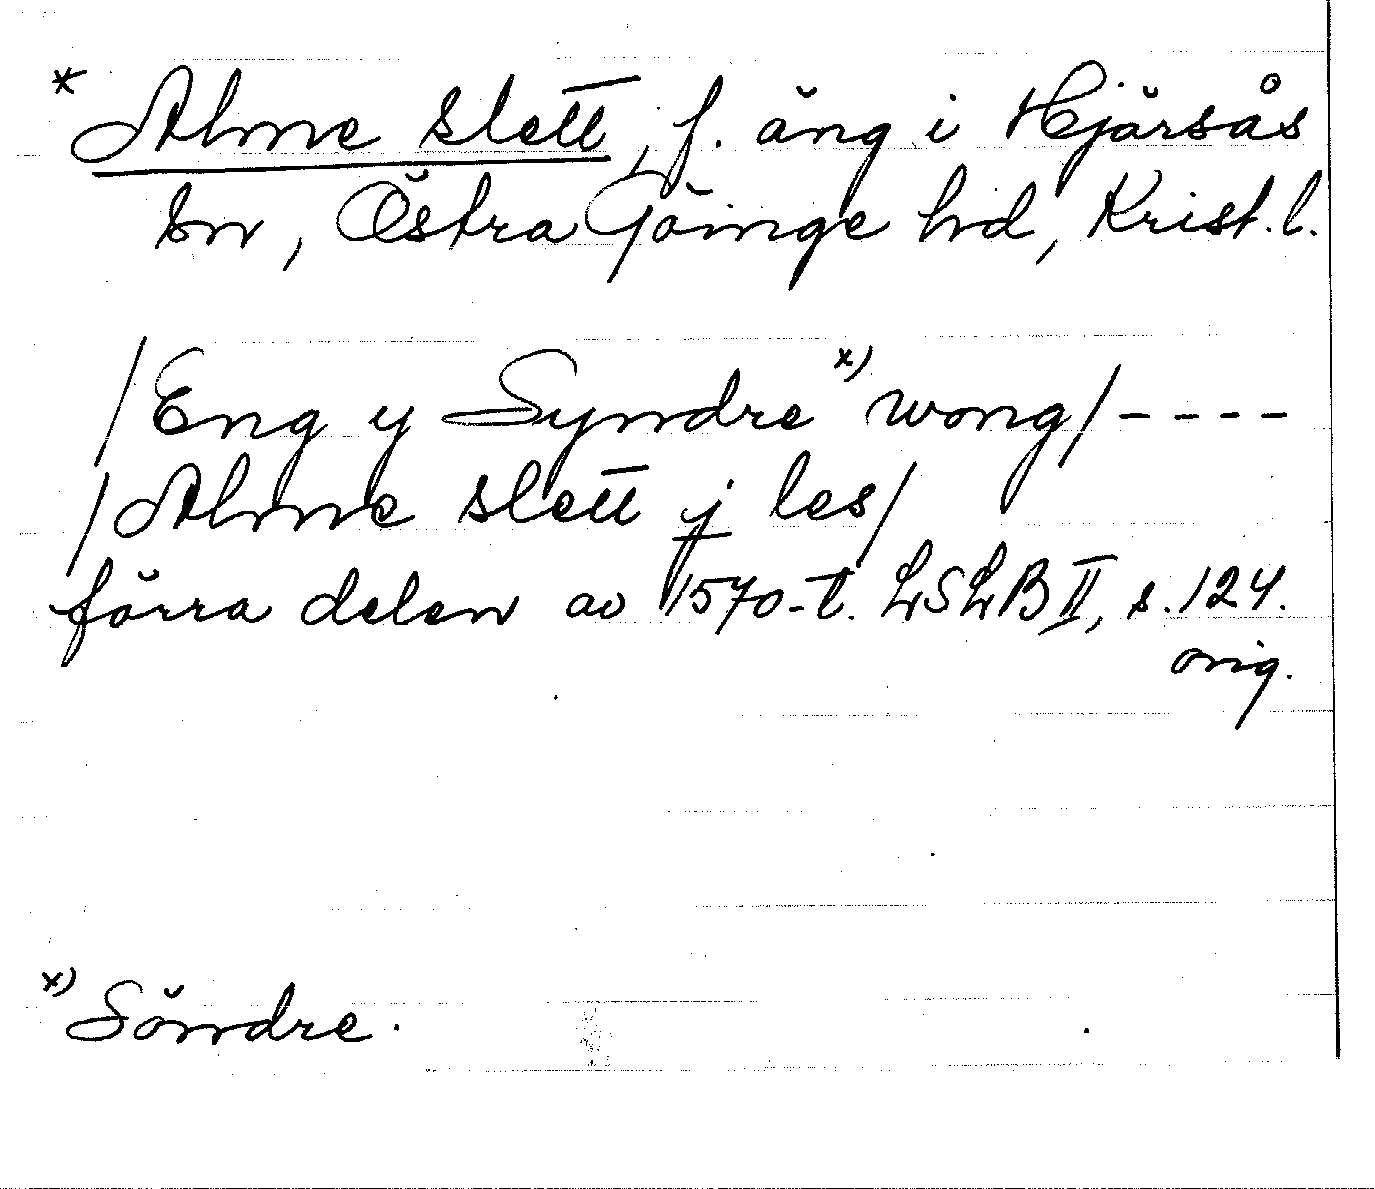 * Alme slett, f. äng i Hjärsås
sn, Östra Göinge hd, Krist. l.
/Eng y Syndre x) wong/----
/Alme slett j les/
förra delen av 1570-t. LSLB II, s. 124.
orig.
x) Söndre.